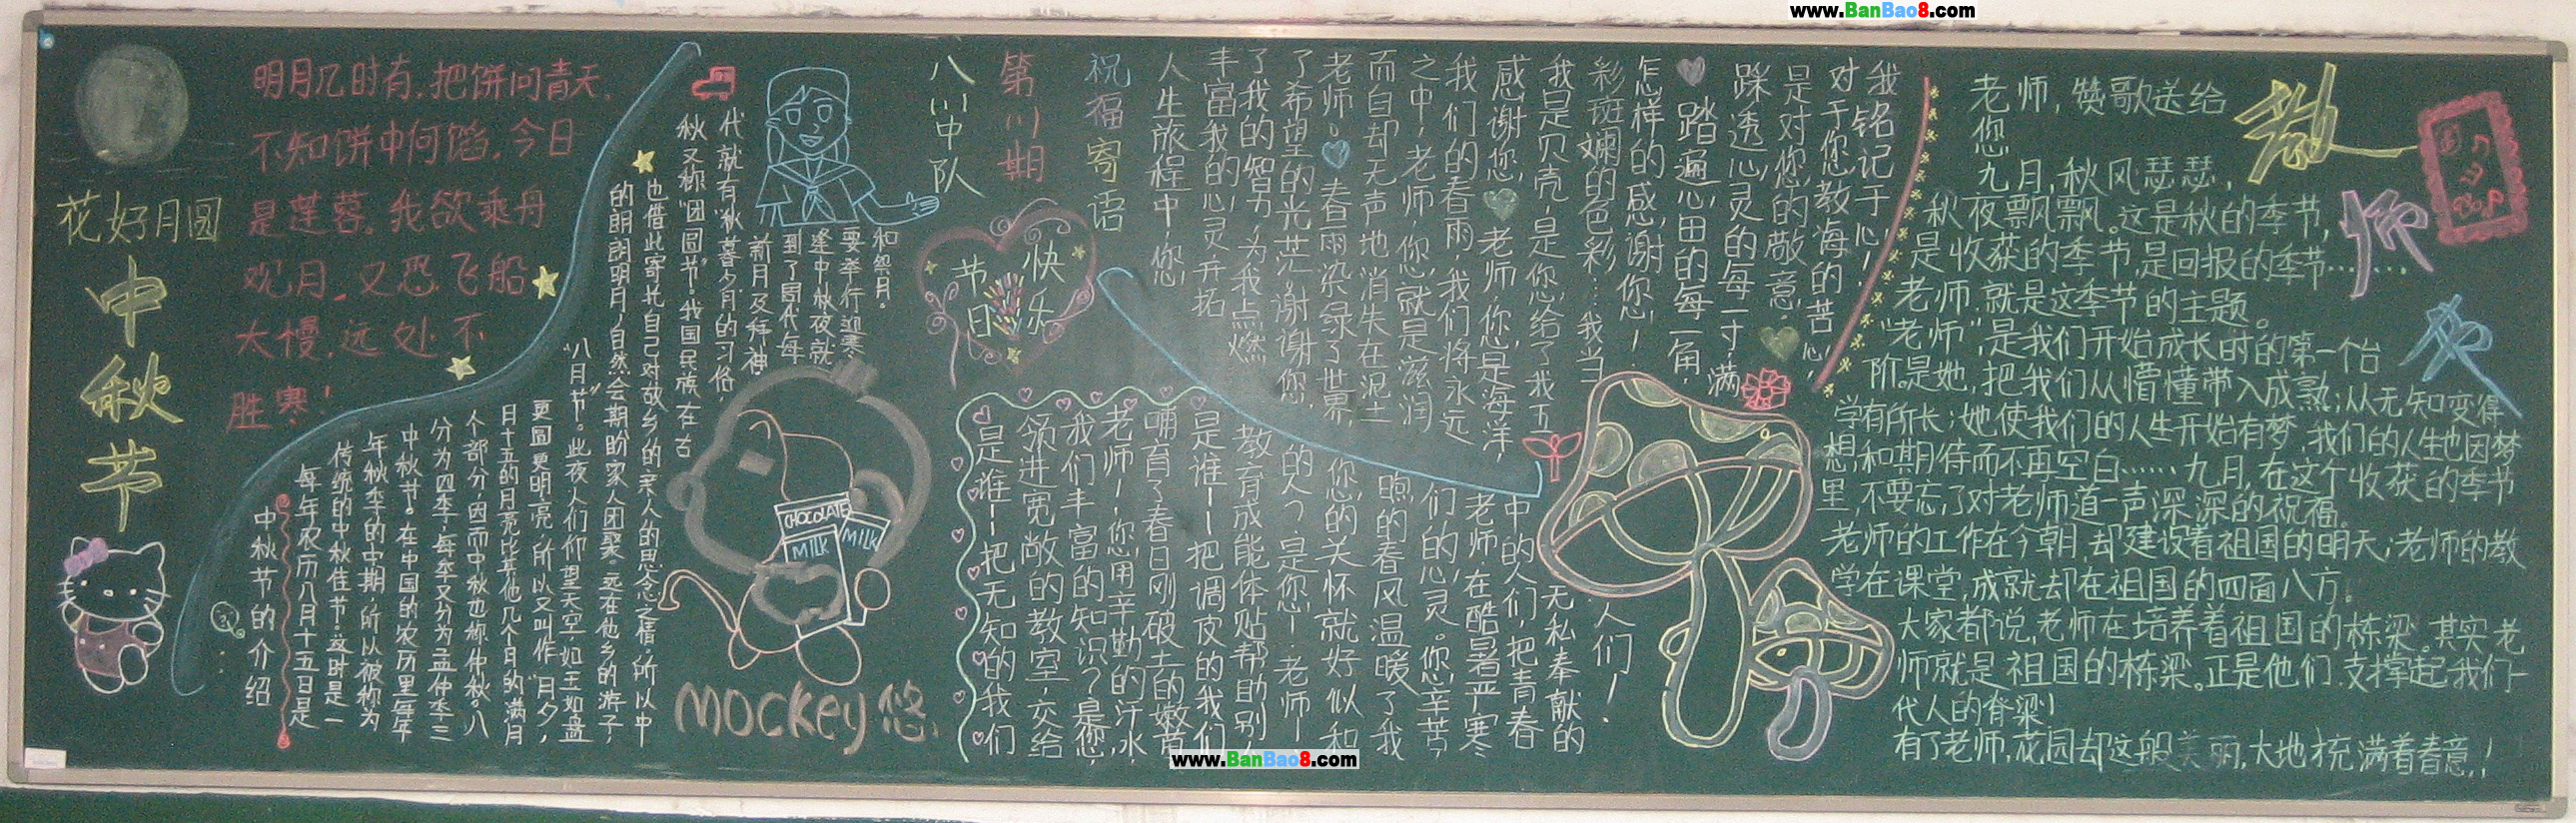 www.BanBao8.com
花好月圆
中秋节
明月几时有,把饼问青天,
不知饼中何馅,今日
是莲蓉。我欲乘舟
观月,又恐飞船
太慢,远处不
胜寒!
中秋节的介绍
每年农历八月十五日是
传统的中秋佳节。这时是一
年秋季的中期,所以被称为
中秋节。在中国的农历里每年
分为四季,每季又分为孟仲季三
个部分,因而中秋也称仲秋。八
月十五的月亮比其他几个月的满月
更圆更明亮,所以又叫作"月夕,
"八月节"。此夜人们仰望天空如玉如盘
的朗朗明月,自然会期盼家人团聚。远在他乡的游子,
也借此寄托自己对故乡的亲人的思念之情。所以中
秋又称"团圆节"。我国民族在古
代就有"秋暮夕月"的习俗,
新月及拜神
到了周代每
逢中秋夜就
要举行迎寒
和祭月。
CHOCOLATE
MILK
MILK
MOCKEY 悠
八川中队
第川期
节日快乐
祝福寄语
人生旅程中,您
丰富我的心灵开拓
了我的智力,为我点燃
了希望的光芒,谢谢您,
老师。春雨染绿了世界,
而自却无声地消失在泥土
之中,老师,您就是滋润
我们的春雨,我们将永远
感谢您,老师,您是海洋,
我是贝壳是您给了我五
彩斑斓的色彩…我当
怎样的感谢您!
踏遍心田的每一角,
踩透心灵的每一寸,满
是对您的敬意。
对于您教诲的苦心,
我铭记于心!
是谁——把无知的我们
领进宽敞的教室,交给
我们丰富的知识?是您,
老师!您用辛勤的汗水,
哺育了春日刚破土的嫩苗
是谁——把调皮的我们
教育成能体贴帮助别
的人?是您!老师!
您的关怀就好似和
煦的春风温暖了我
们的心灵。您辛苦了,
老师,在酷暑严寒
中的人们,把青春
无私奉献的
人们!
老师,赞歌送给
您
教师节
九月,秋风瑟瑟,
秋夜飘飘。这是秋的季节,
是收获的季节,是回报的季节……
老师,就是这季节的主题。
"老师",是我们开始成长时的第一个台
阶。是她,把我们从懵懂带入成熟;从无知变得
学有所长;她使我们的人生开始有梦,我们的人生也因梦
想和期待而不再空白……九月,在这个收获的季节
里,不要忘了对老师道一声深深的祝福。
老师的工作在今朝,却建设着祖国的明天;老师的教
学在课堂,成就却在祖国的四面八方。
大家都说,老师在培养着祖国的栋梁。其实老
师就是祖国的栋梁。正是他们,支撑起我们一
代人的脊梁!
有了老师,花园却这般美丽,大地才充满着春意!
www.BanBao8.com